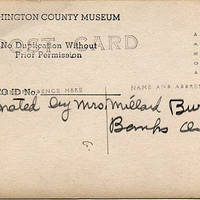 HINGTON COUNTY MUSEUM
POST CARD
No Duplication Without
Prior Permission
TO ID No.
DENCE HERE
NAME AND ADDRES
nated by Mrs Millard Bu
Banks O